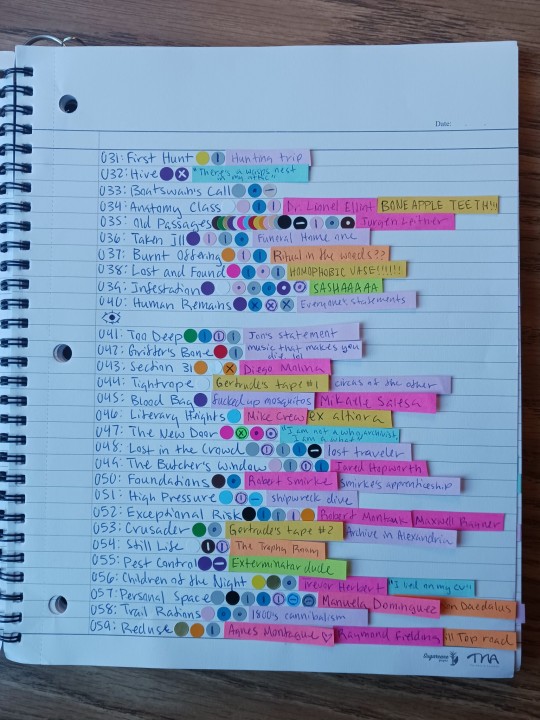 Date:
031: First Hunt Hunting trip
032: Hive "There's a wasps nest in my attic"
033: Boatswain's Call
034: Anatomy Class Dr. Lionel Elliot BONE APPLE TEETH!!!
035: Old Passages Jurgen Leitner
036: Taken Ill Funeral Home one
037: Burnt Offering Ritual in the woods??
038: Lost and Found HOMOPHOBIC VASE!!!!!!
039: Infestation SASHAAAAA
040: Human Remains Everyone's statements
041: Too Deep Jon's statement
042: Grifter's Bone music that makes you die, lol
043: Section 31 Diego Molina
044: Tightrope Gertrude's tape #1 circus of the other
045: Blood Bag fucked up mosquitos Mikaele Salesa
046: Literary Heights Mike Crew ex altiora
047: The New Door "I am not a who, archivist, I am a what"
048: Lost in the Crowd lost traveler
049: The Butcher's Window Jared Hopworth
050: Foundations Robert Smirke Smirke's apprenticeship
051: High Pressure shipwreck dive
052: Exceptional Risk Robert Montauk Maxwell Rayner
053: Crusader Gertrude's tape #2 Archive in Alexandria
054: Still Life The Trophy Room
055: Pest Control Exterminator dude
056: Children of the Night Trevor Herbert "I lied on my CV"
057: Personal Space Manuela Dominguez Daedalus
058: Trail Rations 1800's cannibalism
059: Recluse Agnes Montague Raymond Fielding Hill Top road
TMA